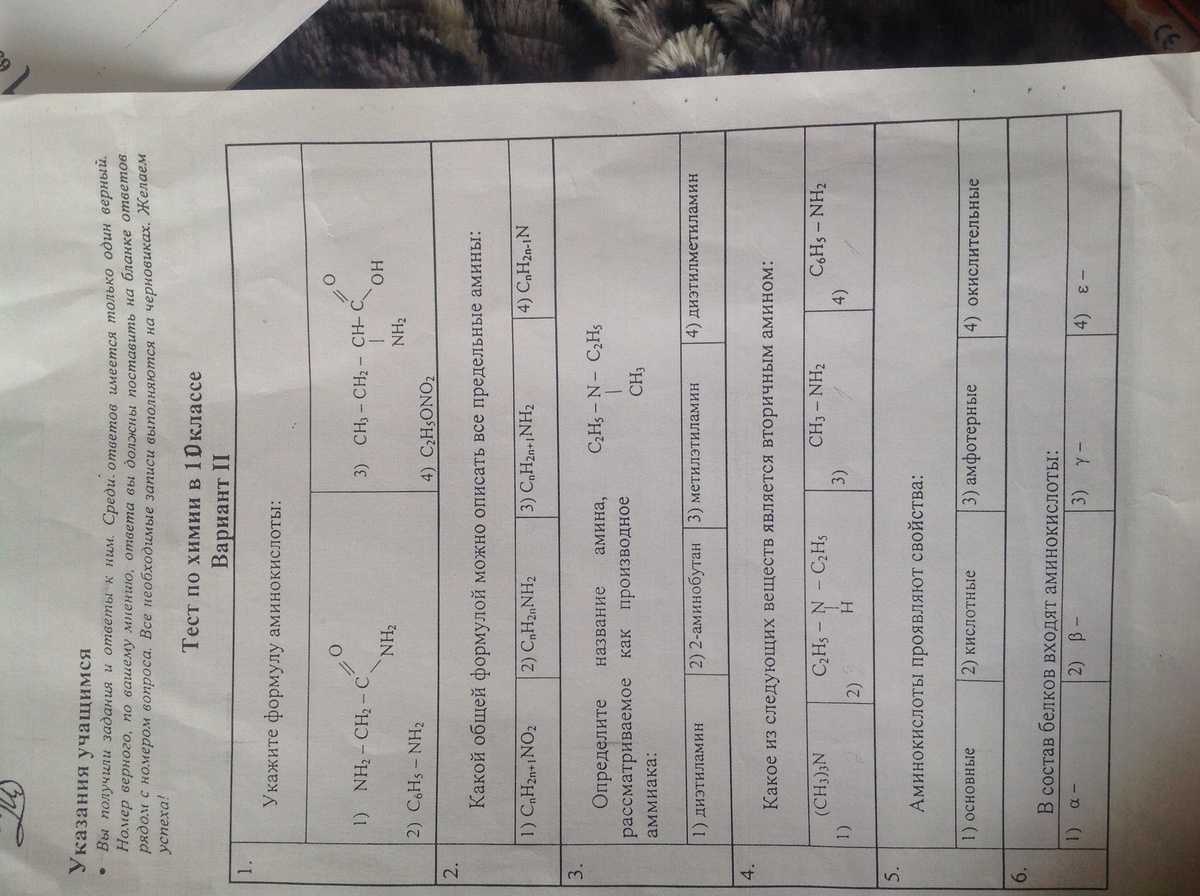 Указания учащимся
• Вы получили задания и ответы к ним. Среди ответов имеется только один верный.
Номер верного, по вашему мнению, ответа вы должны поставить на бланке ответов
рядом с номером вопроса. Все необходимые записи выполняются на черновиках. Желаем
успеха!
Тест по химии в 10 классе
Вариант II
1. Укажите формулу аминокислоты:
1) NH₂ – CH₂ – C
O
NH₂
2) C₆H₅ – NH₂
3) CH₃ – CH₂ – CH – C
O
OH
NH₂
4) C₂H₅ONO₂
2. Какой общей формулой можно описать все предельные амины:
1) CₙH₂ₙ₊₁NO₂ 2) CₙH₂ₙNH₂ 3) CₙH₂ₙ₊₁NH₂ 4) CₙH₂ₙ₋₁N
3. Определите название амина, C₂H₅ – N – C₂H₅
рассматриваемое как производное CH₃
аммиака:
1) диэтиламин 2) 2-аминобутан 3) метилэтиламин 4) диэтилметиламин
4. Какое из следующих веществ является вторичным амином:
1) (CH₃)₃N 2) C₂H₅ – N – C₂H₅ 3) CH₃ – NH₂ 4) C₆H₅ – NH₂
H
5. Аминокислоты проявляют свойства:
1) основные 2) кислотные 3) амфотерные 4) окислительные
6. В состав белков входят аминокислоты:
1) α – 2) β – 3) γ – 4) ε –